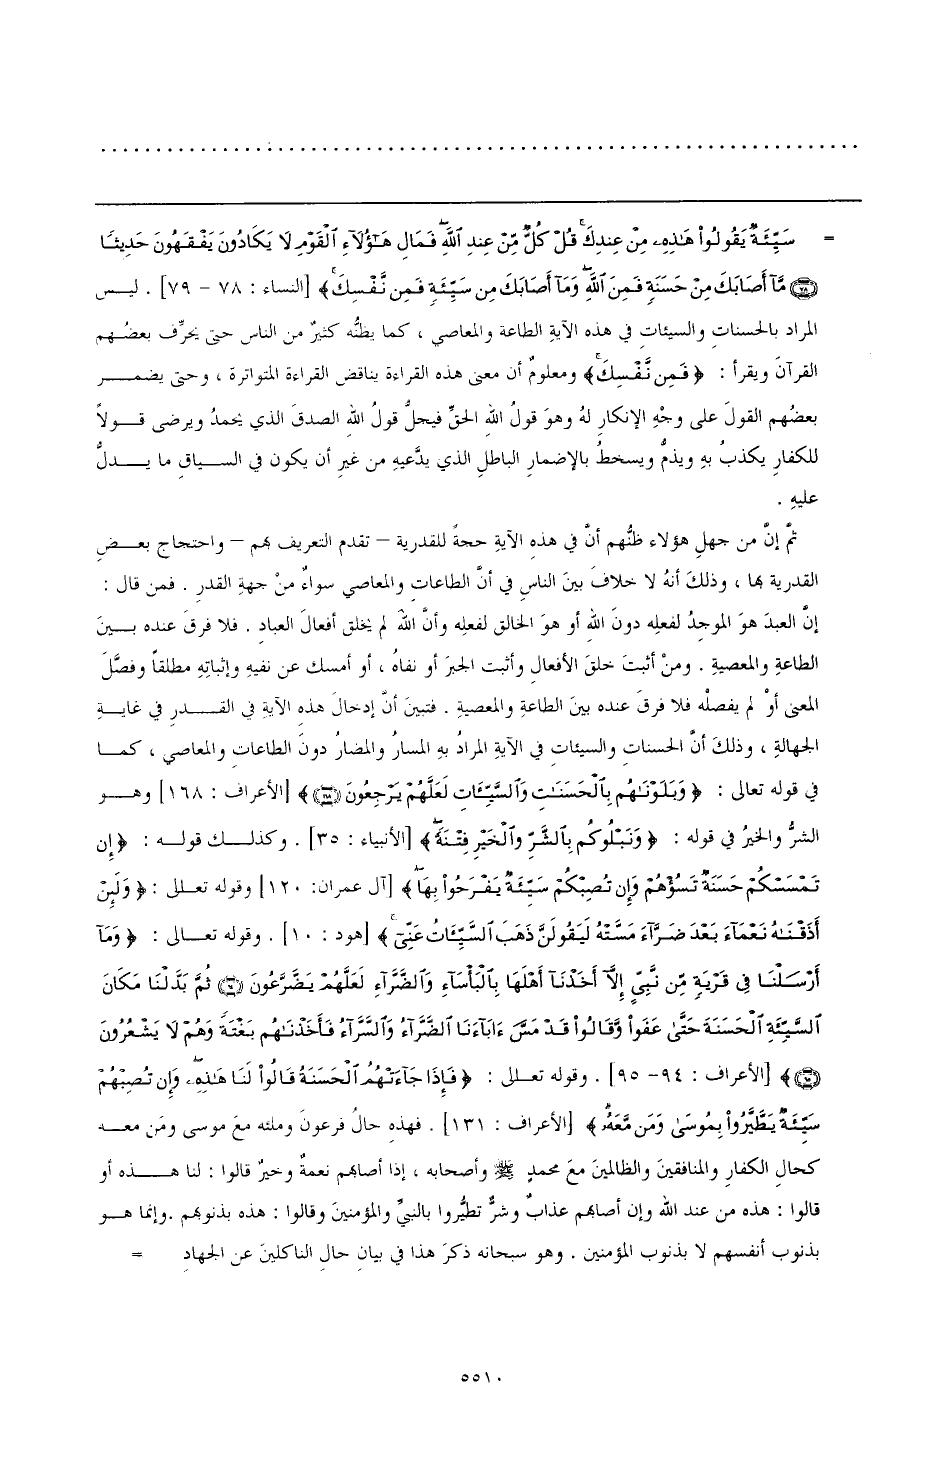 = سَيِّئَةٌ يَقُولُوا۟ هَٰذِهِۦ مِنْ عِندِكَ ۚ قُلْ كُلٌّ مِّنْ عِندِ ٱللَّهِ ۖ فَمَالِ هَٰٓؤُلَآءِ ٱلْقَوْمِ لَا يَكَادُونَ يَفْقَهُونَ حَدِيثًا
﴿٧٨﴾ مَّآ أَصَابَكَ مِنْ حَسَنَةٍ فَمِنَ ٱللَّهِ ۖ وَمَآ أَصَابَكَ مِن سَيِّئَةٍ فَمِن نَّفْسِكَ ۚ ﴾ [النساء : ٧٨ – ٧٩] . ليس
المراد بالحسناتِ والسيئاتِ في هذه الآيةِ الطاعة والمعاصي ، كما يظنُّه كثيرٌ من الناس حتى يحرِّف بعضُهم
القرآنَ ويقرأ : ﴿ فَمِن نَّفْسِكَ ۚ ﴾ ومعلومٌ أن معنى هذه القراءة يناقض القراءة المتواترة ، وحتى يضمر
بعضُهم القولَ على وجْهِ الإنكار لهُ وهوَ قولُ الله الحقِّ فيجلُّ قولُ الله الصدقَ الذي يحمدُ ويرضى قولاً
للكفار يكذبُ بهِ ويذمُّ ويسخطُ بالإضمارِ الباطلِ الذي يدَّعيهِ من غيرِ أن يكون في السياق ما يدلُّ
عليهِ .
ثمَّ إنَّ من جهلِ هؤلاء ظنُّهم أنَّ في هذه الآيةِ حجةً للقدرية – تقدم التعريف بهم – واحتجاج بعضِ
القدرية بها ، وذلكَ أنهُ لا خلافَ بينَ الناس في أنَّ الطاعات والمعاصي سواءٌ منْ جهةِ القدر . فمن قال :
إنَّ العبدَ هوَ الموجدُ لفعلِه دونَ الله أو هوَ الخالق لفعلِه وأنَّ اللهَ لم يخلق أفعالَ العباد . فلا فرقَ عنده بينَ
الطاعةِ والمعصيةِ . ومنْ أثبتَ خلقَ الأفعال وأثبت الجبرَ أو نفاهُ ، أو أمسك عن نفيهِ وإثباتِهِ مطلقاً وفصَّلَ
المعنى أوْ لم يفصلْه فلا فرقَ عنده بينَ الطاعةِ والمعصيةِ . فتبينَ أنَّ إدخالَ هذه الآيةِ في القدرِ في غايةِ
الجهالةِ ، وذلكَ أنَّ الحسنات والسيئات في الآيةِ المرادُ بهِ المسارُ والمضارُ دونَ الطاعاتِ والمعاصي ، كما
في قوله تعالى : ﴿ وَبَلَوْنَٰهُم بِٱلْحَسَنَٰتِ وَٱلسَّيِّـَٔاتِ لَعَلَّهُمْ يَرْجِعُونَ ﴿١٦٨﴾ ﴾ [الأعراف : ١٦٨] وهو
الشرُّ والخيرُ في قوله : ﴿ وَنَبْلُوكُم بِٱلشَّرِّ وَٱلْخَيْرِ فِتْنَةً ۖ ﴾ [الأنبياء : ٣٥] . وكذلك قوله : ﴿ إِن
تَمْسَسْكُمْ حَسَنَةٌ تَسُؤْهُمْ وَإِن تُصِبْكُمْ سَيِّئَةٌ يَفْرَحُوا۟ بِهَا ۖ ﴾ [آل عمران: ١٢٠] وقوله تعالى : ﴿ وَلَئِنْ
أَذَقْنَٰهُ نَعْمَآءَ بَعْدَ ضَرَّآءَ مَسَّتْهُ لَيَقُولَنَّ ذَهَبَ ٱلسَّيِّـَٔاتُ عَنِّىٓ ۚ ﴾ [هود : ١٠] . وقوله تعالى : ﴿ وَمَآ
أَرْسَلْنَا فِى قَرْيَةٍ مِّن نَّبِىٍّ إِلَّآ أَخَذْنَآ أَهْلَهَا بِٱلْبَأْسَآءِ وَٱلضَّرَّآءِ لَعَلَّهُمْ يَضَّرَّعُونَ ﴿٩٤﴾ ثُمَّ بَدَّلْنَا مَكَانَ
ٱلسَّيِّئَةِ ٱلْحَسَنَةَ حَتَّىٰ عَفَوا۟ وَّقَالُوا۟ قَدْ مَسَّ ءَابَآءَنَا ٱلضَّرَّآءُ وَٱلسَّرَّآءُ فَأَخَذْنَٰهُم بَغْتَةً وَهُمْ لَا يَشْعُرُونَ
﴿٩٥﴾ ﴾ [الأعراف : ٩٤– ٩٥] . وقوله تعالى : ﴿ فَإِذَا جَآءَتْهُمُ ٱلْحَسَنَةُ قَالُوا۟ لَنَا هَٰذِهِۦ ۖ وَإِن تُصِبْهُمْ
سَيِّئَةٌ يَطَّيَّرُوا۟ بِمُوسَىٰ وَمَن مَّعَهُۥٓ ۗ ﴾ [الأعراف : ١٣١] . فهذهِ حالُ فرعونَ وملئه معَ موسى ومَن معه
كحالِ الكفارِ والمنافقينَ والظالمينَ معَ محمدٍ ﷺ وأصحابه ، إذا أصابهم نعمةٌ وخيرٌ قالوا : لنا هذه أو
قالوا : هذه من عند الله وإن أصابهم عذابٌ وشرٌّ تطيُّروا بالنبيِّ والمؤمنينَ وقالوا : هذه بذنوبهم .وإنما هو
بذنوب أنفسهم لا بذنوب المؤمنين . وهو سبحانه ذكرَ هذا في بيانِ حالِ الناكلينَ عن الجهادِ =
٥٥١٠